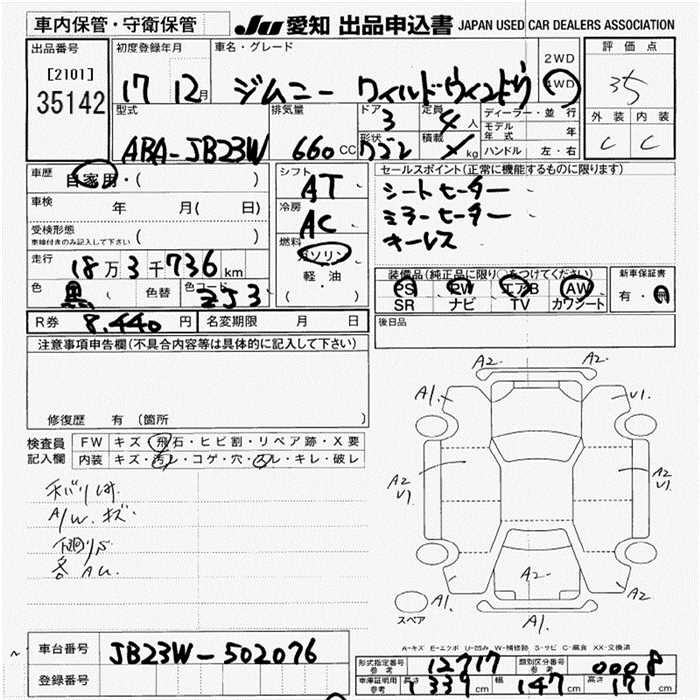 車内保管・守衛保管
JU 愛知 出品申込書 JAPAN USED CAR DEALERS ASSOCIATION
出品番号
[2101]
35142
初度登録年月
17 12月
車名・グレード
ジムニー ワイルドウインド
2WD
4WD
評価点
3.5
外装 内装
C C
型式
ABA-JB23W
排気量
660 CC
ドア
3
定員
4 人
形状
積載
kg
ディーラー・並行
モデル年式 年
ハンドル 左・右
車歴
自家用・( )
車検
年 月( 日)
受検形態
車検付きのみ記入して下さい ( )
走行
18万3千736km
色 黒 色替 色コード ZJ3
R券 8,440 円 名変期限 月 日
シフト
AT
冷房
AC
燃料
ガソリン
軽・油
( ・ )
セールスポイント(正常に機能するものに限ります)
シートヒーター
ミラーヒーター
キーレス
装備品(純正品に限り○をつけてください)
PS PW エアB AW
SR ナビ TV カワシート
新車保証書
有・無
後日品
注意事項申告欄(不具合内容等は具体的に記入して下さい)
修復歴 有(箇所 )
検査員記入欄
FW キズ・飛石・ヒビ割・リペア跡・X要
内装 キズ・汚レ・コゲ・穴・スレ・キレ・破レ
A/W.キズ
下廻りS
各AU.
A2 A2
A1. U1.
A2 U1 A2 U1
A2
A1. A2
A1.
スペア
A-キズ E-エクボ U-凹み W-補修跡 S-サビ C-腐食 XX-交換済
車台番号 JB23W-502076
登録番号
形式指定番号 参考 12717 類別区分番号 参考 0008
車庫証明用 参考 長さ 339cm 幅 147cm 高さ 171cm